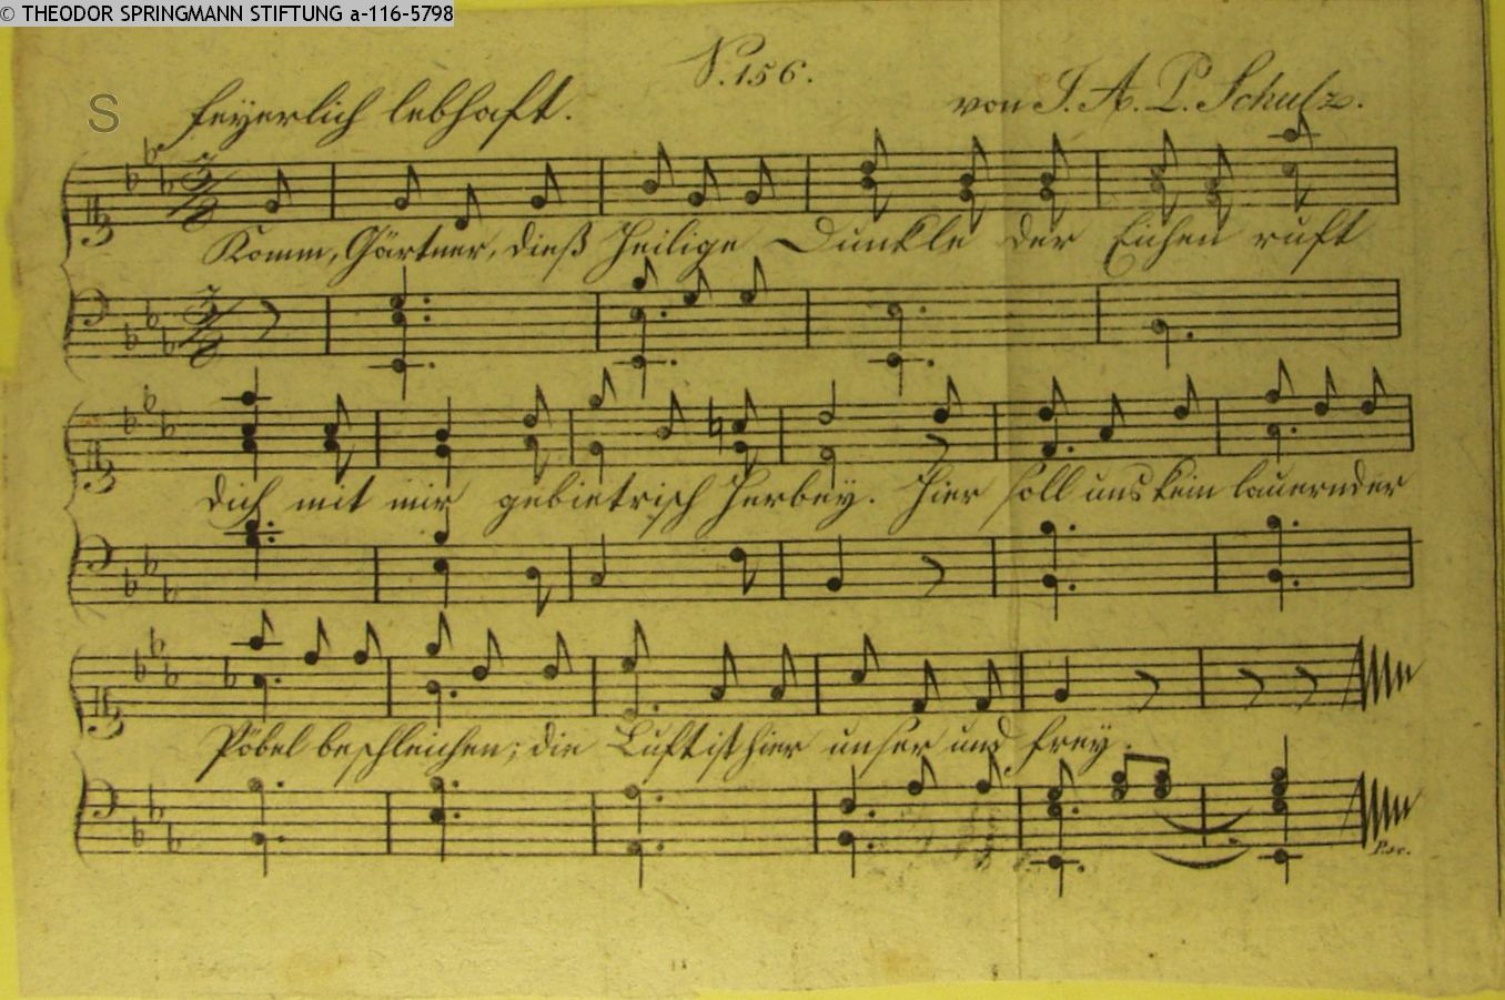 © THEODOR SPRINGMANN STIFTUNG a-116-5798
N. 156.
S
feyerlich lebhaft.
von J. A. P. Schulz.
Komm, Gärtner, dieß heilige Dunkle der Eichen ruft
dich mit mir gebietrisch herbey. Hier soll uns kein lauernder
Pöbel beschleichen; die Luft ist hier unser und frey.